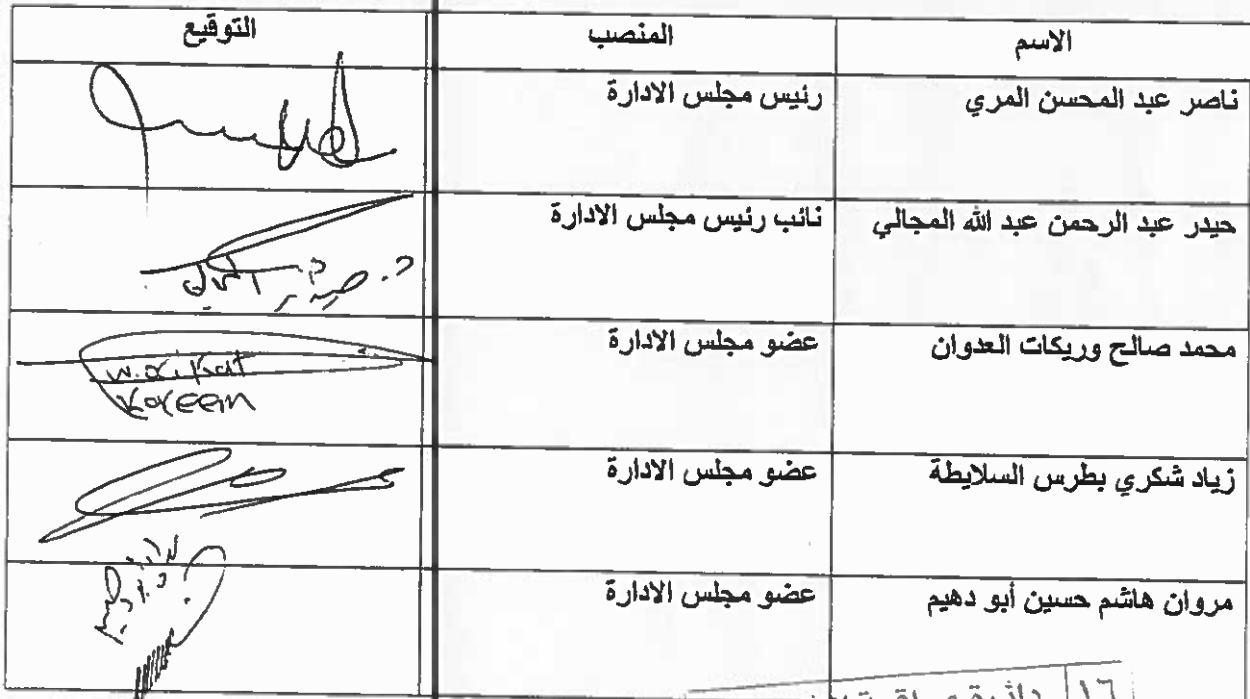 الاسم المنصب التوقيع
ناصر عبد المحسن المري رئيس مجلس الادارة
حيدر عبد الرحمن عبد الله المجالي نائب رئيس مجلس الادارة
محمد صالح وريكات العدوان عضو مجلس الادارة
Kareem
زياد شكري بطرس السلايطة عضو مجلس الادارة
مروان هاشم حسين أبو دهيم عضو مجلس الادارة
١٦ دائرة